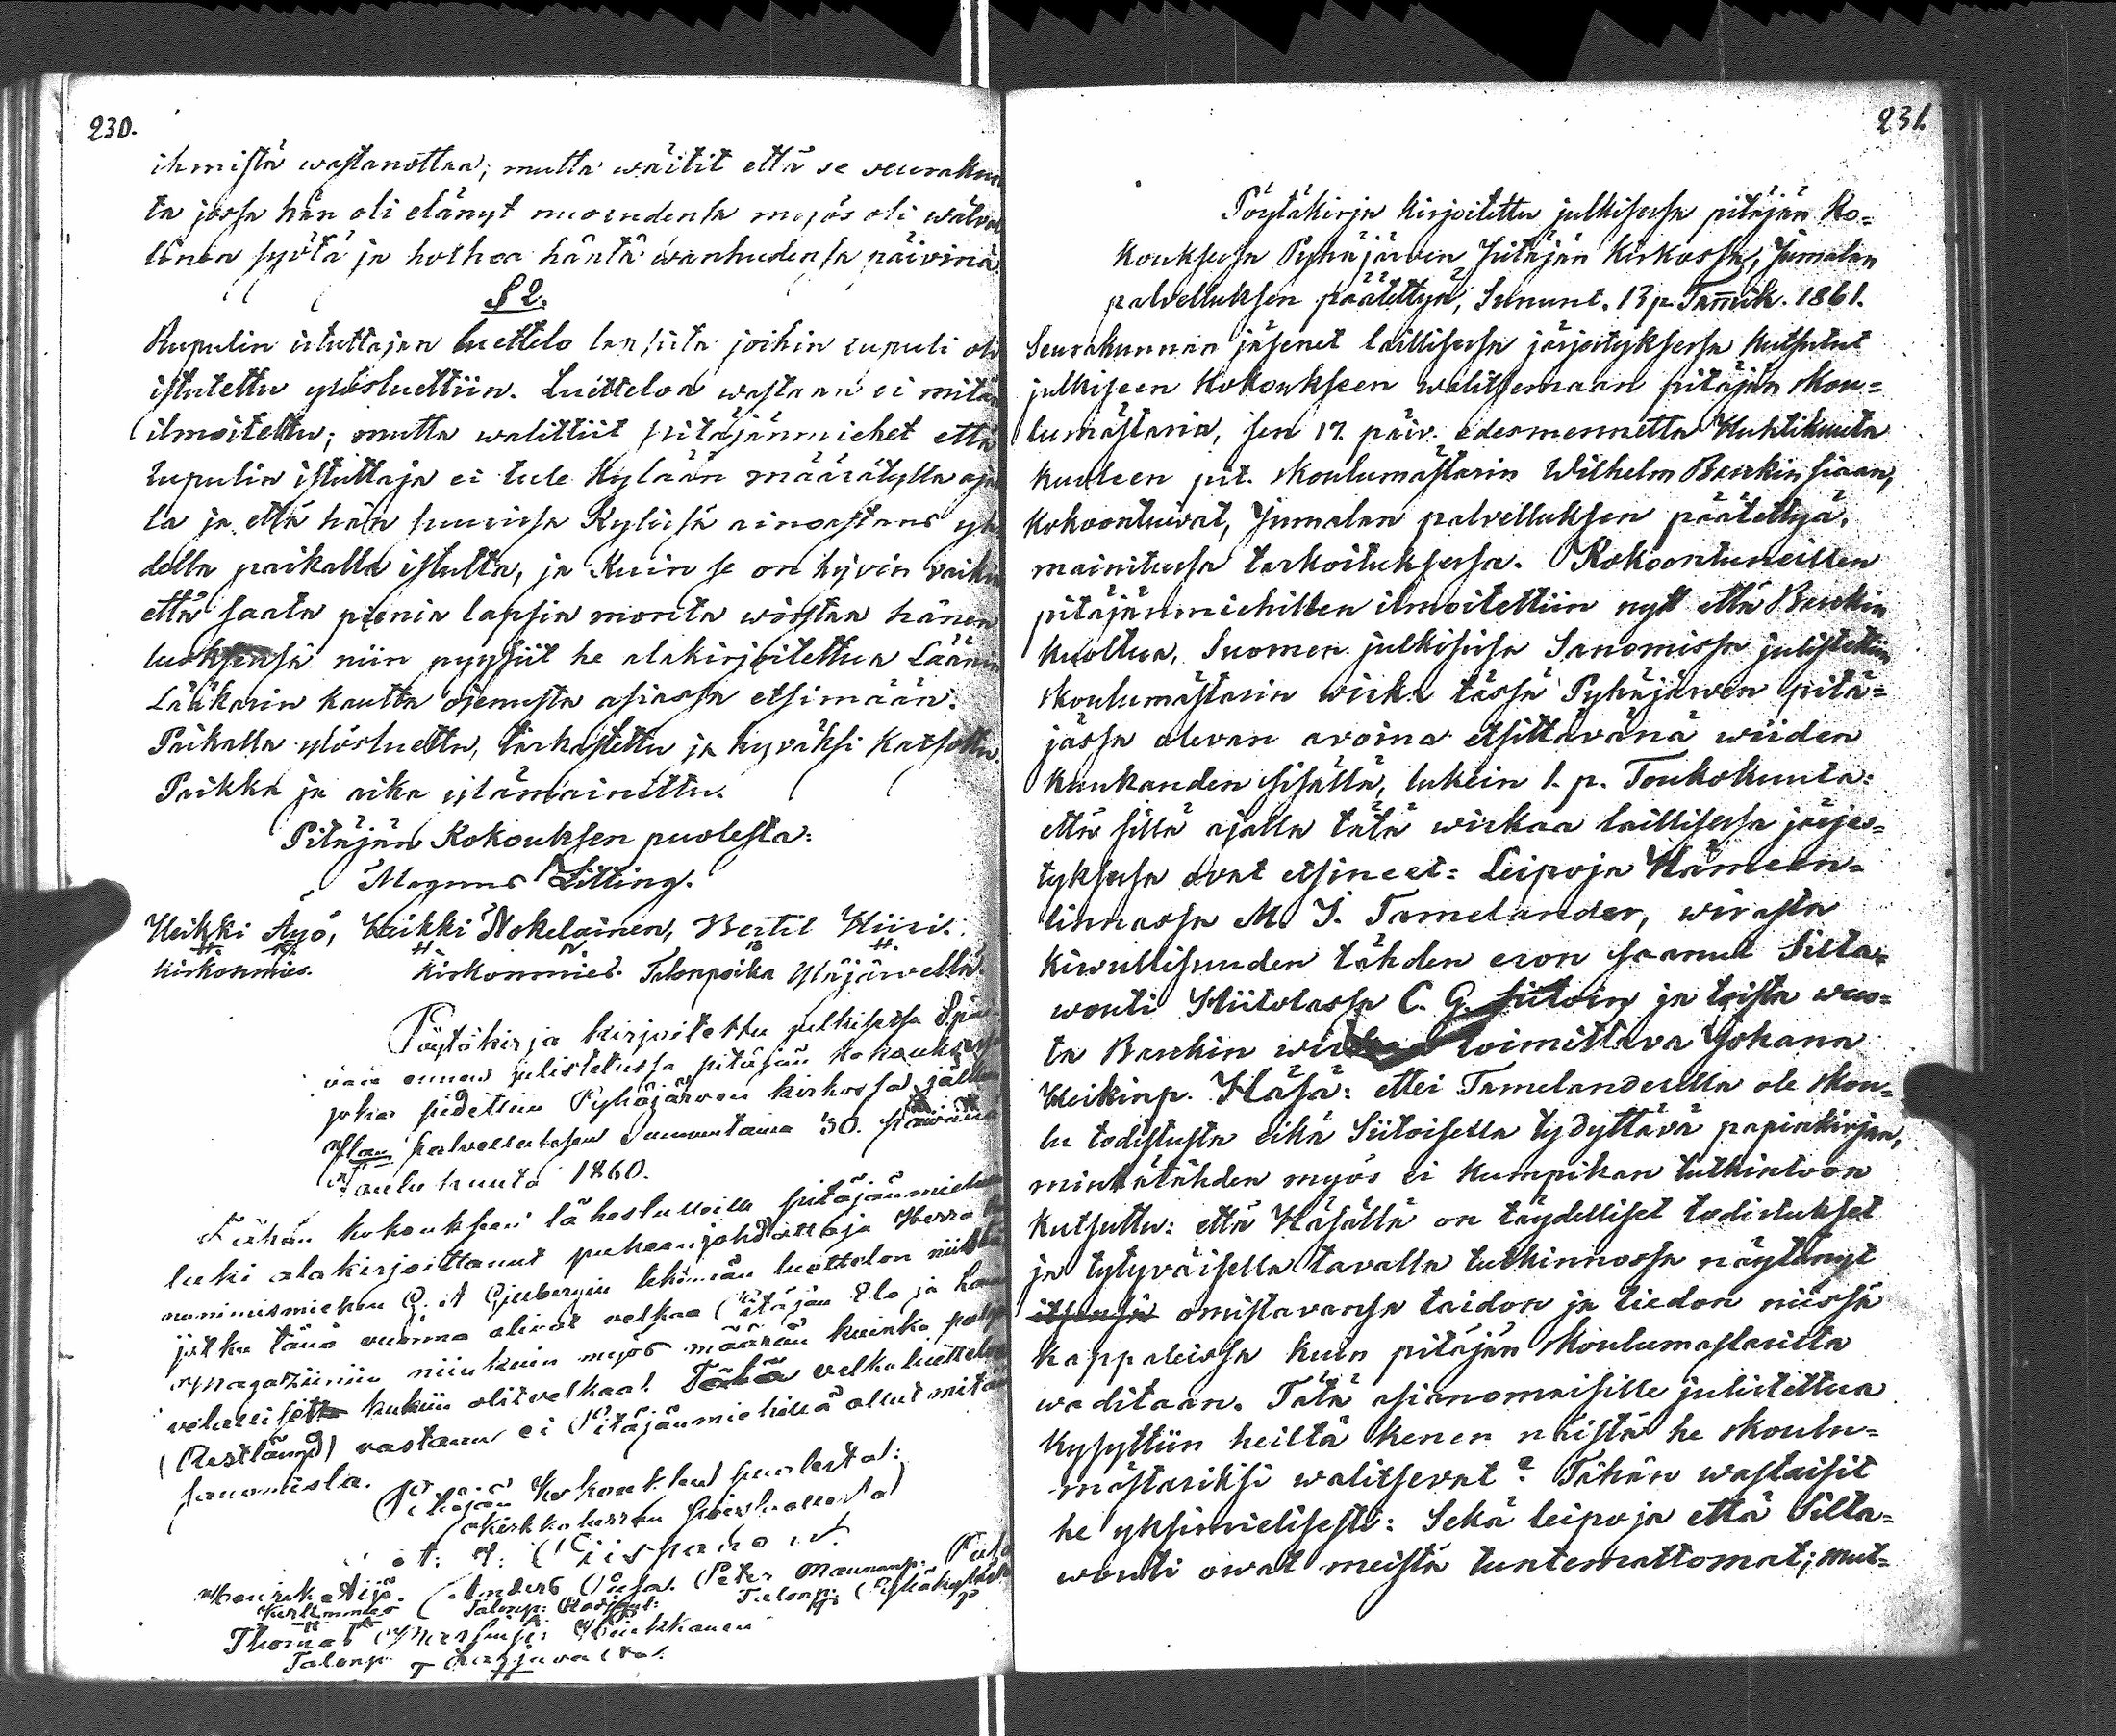 230.
ihmistä wastanottaa; mutta wäitit että se seurakun
ta jossa hän oli elänyt nuorudensa myös oli wälvol
linen syötä ja hoitaa häntä wanhudensa päivinä.
§ 2.
Rupulin istuttajan luettelo lapsista joihin rupuli oli
istutettu ylösluettiin. Luetteloa wastaan ei mitän
ilmoitettu; mutta walittiit pitäjänmiehet että
rupulin istuttaja ei tule Kylään määrätyllä ajal
la ja että hän suurissa Kylissä ainoastans yh
dellä paikalla istutta, ja Kuin se on hyvin vaikia
että saata pieniä lapsia monta wirstaa hänen
luoksensa niin pyysiit he alakirjoitettua Läänin
Läkärin kautta ojennusta asiassa etsimään.
Paikalla ylösluettu, tarkastettu ja hyväksi katsottu.
Paikka ja aika ylämainittu.
Pitäjän Kokouksen puolesta:
Magnus Litting.
Heikki Äyö, Heikki Nokelainen, Bertil Hiiri.
Kirkonmies. Kirkonmies. Talonpoika Yläjärveltä.
Pöytäkirja kirjoitettu julkisessa 8 päi
vää ennen julistetussa pitäjän kokouksessa
joka pidettiin Pyhäjärven kirkossa jälken
Jlan palvelluksen Sunnuntaina 30. päivänä
Joulukuuta 1860.
Tähän kokouksen lähestulleille pitäjänmiehille
luki alakirjoittanut puheenjohdattaja Herra
nimismiehen tekemän luettelon niistä
jotka tänä vuonna olivat velkaa Pitäjän Elo ja
Magaziiniin niinkuin myös määrän kuinka paljon
kukin olit velkaa. Tätä velkaluetteloa
(Restlängd) vastaan ei Pitäjänmiehillä ollut mitän
sanomista.
Pitäjän Kokouksen puolesta:
Kirkkoherran
Anders Peter Maununp.
Kirkonmies Talonp. Talonp.
Thomas
Talonp.
231.
Pöytäkirja kirjoitettu julkisessa pitäjän Ko=
kouksessa Pyhäjärven Pitäjän Kirkossa, Jumalan
palvelluksen päätettyä, Sununt. 13 p. Tamik. 1861.
Seurakunnan jäsenet laillisessa järjestyksessä kutsutut
julkiseen kokoukseen walitsemaan pitäjän skou=
lumästaria, sen 17. päiv. edesmennettä Huhtikuuta
kuolleen pit. skoulumästarin Wilhelm Baskin siaan,
kokoontuivat, Jumalan palvelluksen päätettyä,
mainitussa tarkoituksessa. Kokoontuneillen
pitäjänmiehillen ilmoitettiin nyt että Baskin
kuoltua, Suomen julkisissa Sanomissa julistettiin
skoulumästarin wirka tässä Pyhäjärwen pitä=
jässä olevan avoina etsittävänä wiiden
kuukauden sisällä, lukein 1. p. Toukokuuta:
että sillä ajalla tätä wirkaa laillisessa järjes=
tyksessä ovat etsineet: Leipoja Hämeen=
linnassa M. J. Tamelander, wirasta
kiwullisuuden tähden eron saanut Silta=
wouti Hiitolassa C. G. Siitoin, ja toista wuo=
ta Baskin wirkaa toimittava Johana
Heikinp. Häsä: ettei Tamelanderilla ole skou=
lu todistusta eikä Siitoisella tydyttävä papinkirjaa,
minkätähden myös ei kumpikan tutkintoon
kutsuttu: että Häsällä on täydelliset todistukset
ja tytyväisellä tavalla tutkinnossa näytänyt
itsensä omistavansa taidon ja tiedon niissä
kappaleissa kuin pitäjän skoulumastarilta
waditaan. Tätä asianomaisille julistettua
kysyttiin heiltä kenen näistä he skoulu=
mästariksi walitsevat? Tähän wastaisit
he yksimielisesti: Sekä leipoja että Silta=
wouti owat meistä tuntemattomat; mut=